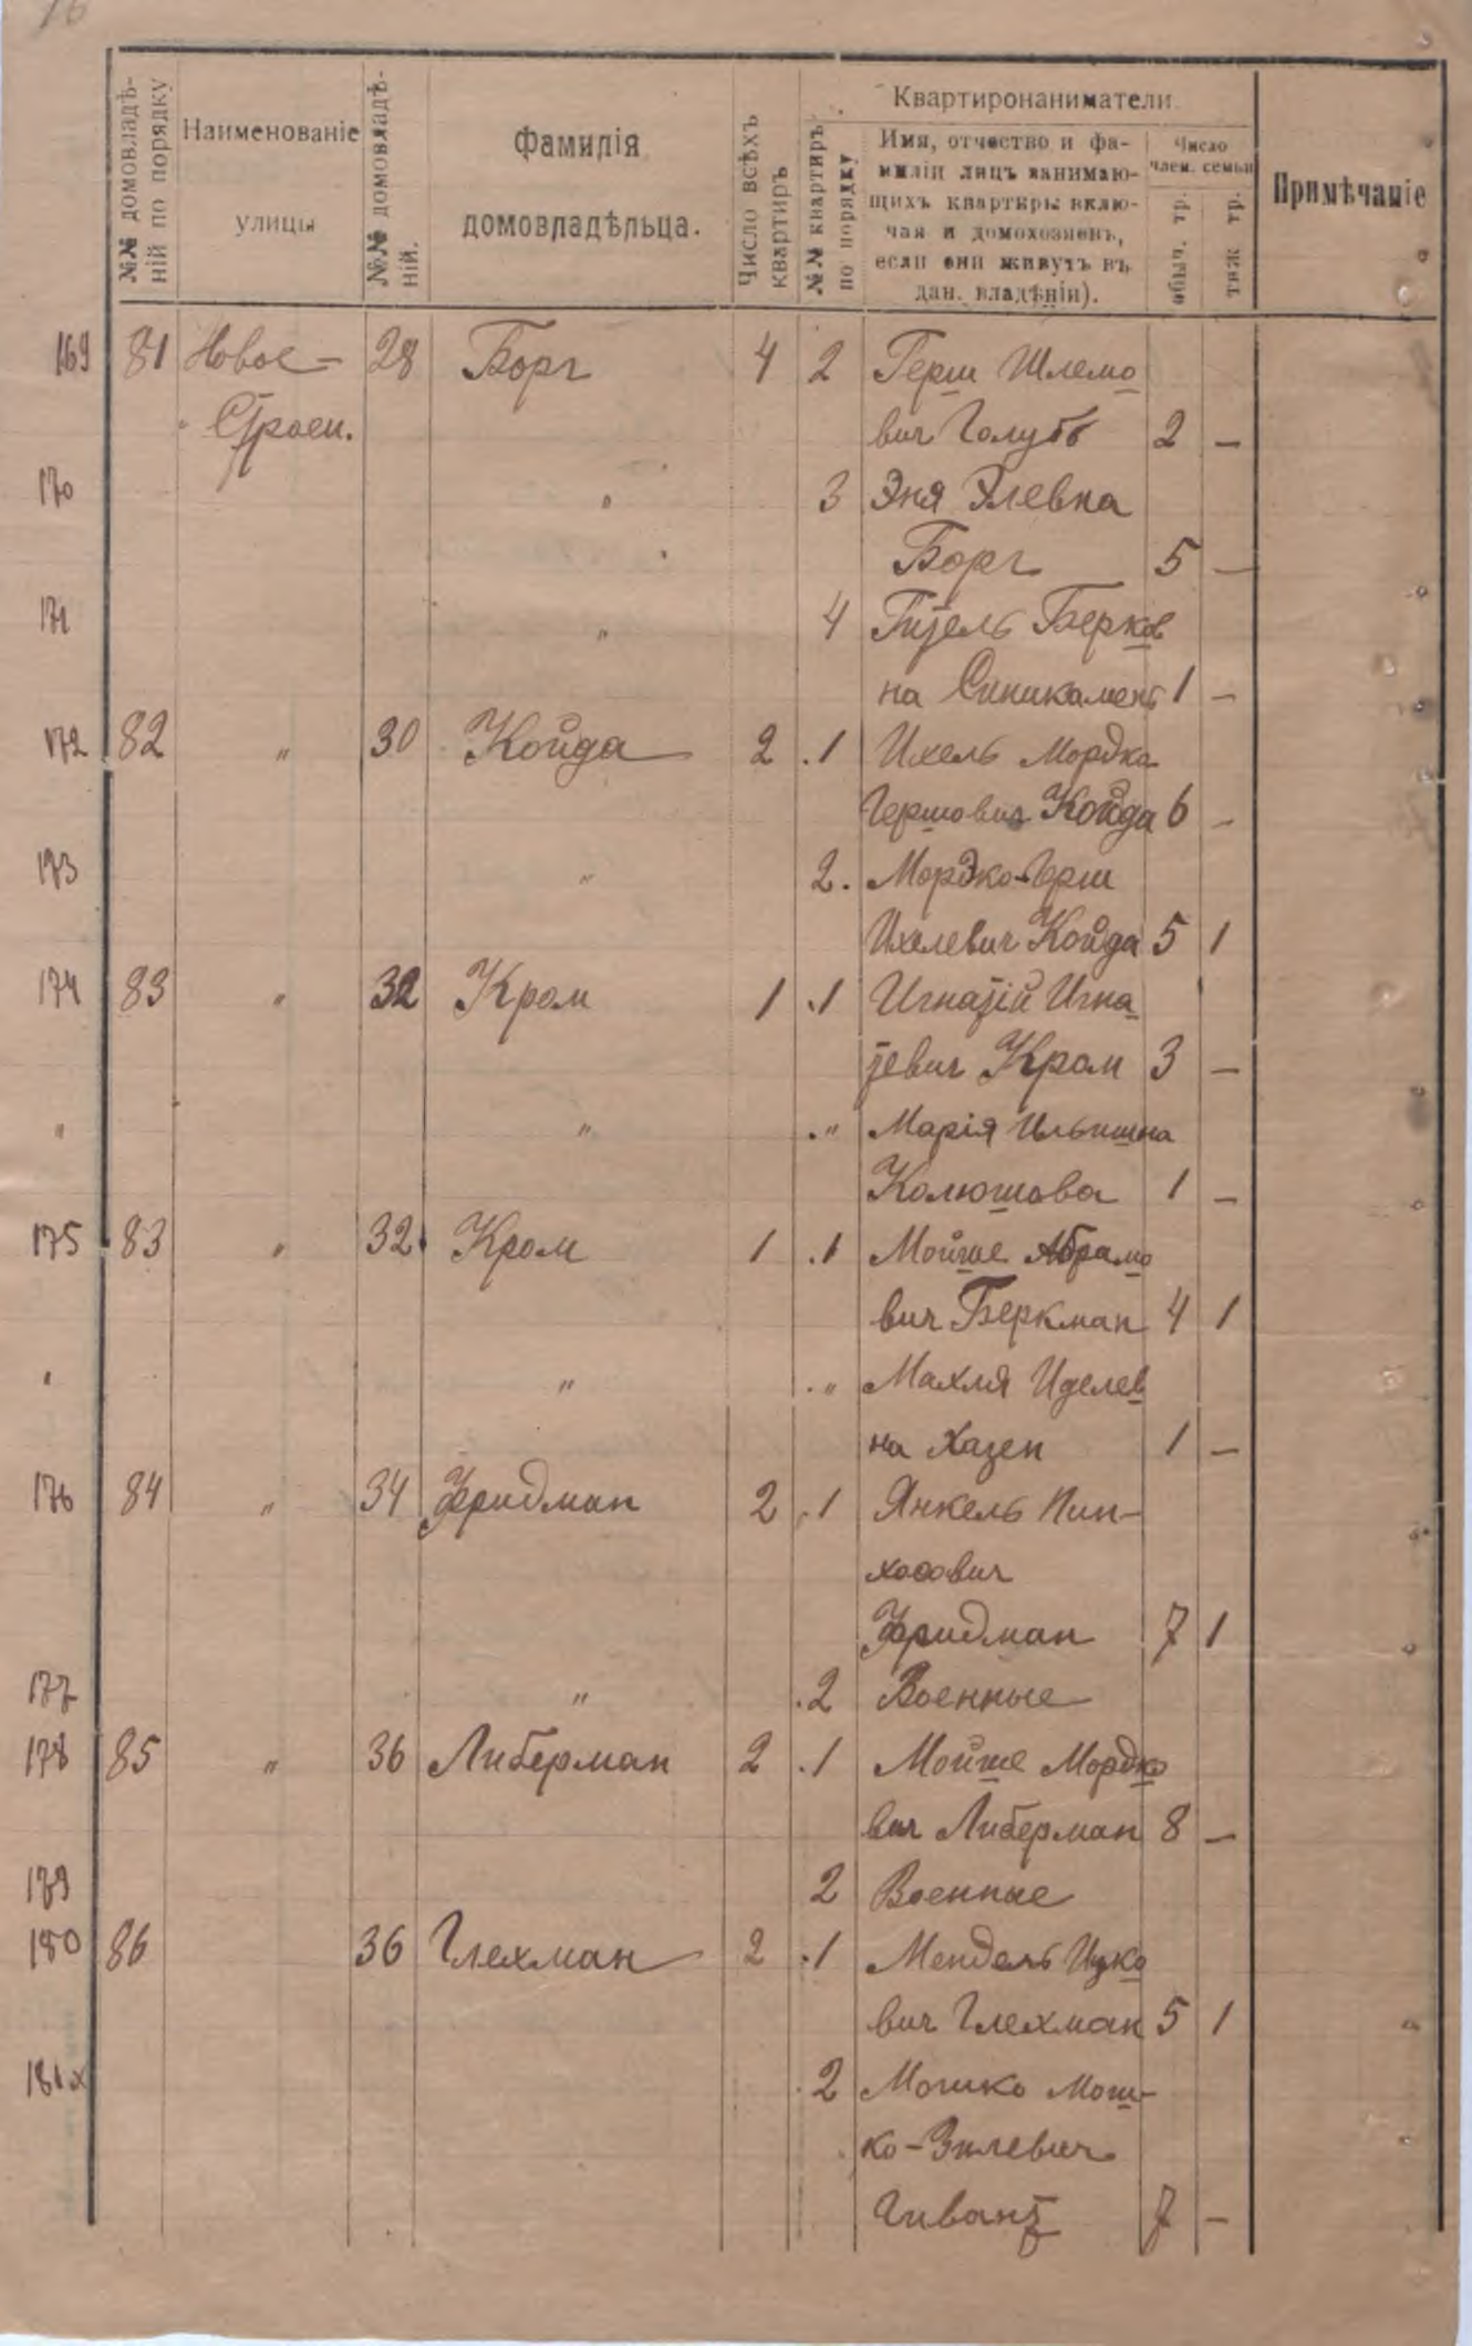 16
№№ домовладѣ-
ній по порядку
Наименованіе
улицы
№№ домовладѣ-
ній.
Фамилія
домовладѣльца.
Число всѣхъ
квартиръ
№№ квартиръ
по порядку
Квартиронаниматели
Имя, отчество и фа-
миліи лицъ занимаю-
щихъ квартиры вклю-
чая и домохозяевъ,
если они живутъ въ
дан. владѣніи).
Число
член. семьи
обыч. тр.
тяж тр.
Примѣчаніе
169 81 Новое- 28 Борг 4 2 Герш Шлемо
Строен. вич Голубь 2 —
170 " 3 Эня Элевна
Борг 5 —
171 " 4 Гитель Берков
на Синикамень 1 —
172 82 " 30 Койда 2 1 Ихель Мордко
Гершович Койда 6 —
173 " 2. Мордко-Герш
Ихелевич Койда 5 1
174 83 " 32 Кром 1 1 Игнатій Игна
тевич Кром 3 —
" " " Марія Ильишна
Колюшова 1 —
175 83 " 32 Кром 1 1 Мойше Абрамо
вич Беркман 4 1
" " " Махля Иделев
на Хазен 1 —
176 84 " 34 Фридман 2 1 Янкель Пин-
хосович
Фридман 7 1
177 " 2 Военные
178 85 " 36 Либерман 2 1 Мойше Мордко
вич Либерман 8 —
179 2 Военные
180 86 36 Глехман 2 1 Мендель Ицко
вич Глехман 5 1
181 x 2 Мошко Мош-
ко-Зилевич
7 —